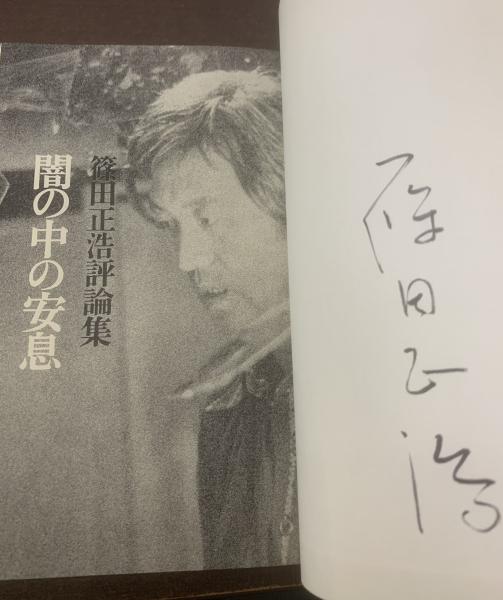 篠田正浩
篠田正浩評論集
闇の中の安息